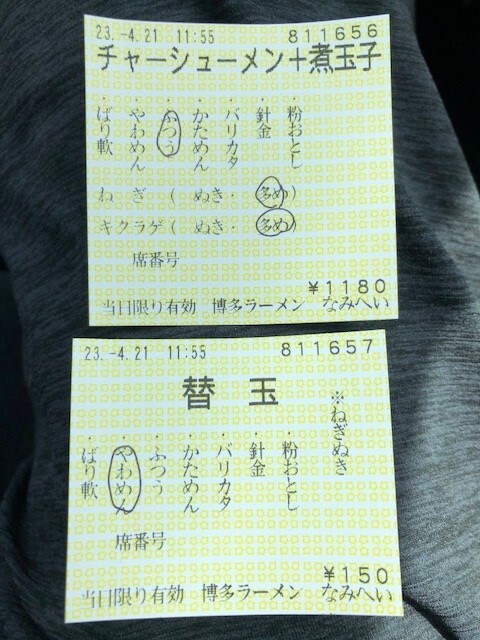 23.-4.21 11:55 811656
チャーシューメン+煮玉子
・粉おとし
・針金
・バリカタ
・かためん
・ふつう
・やわめん
・ばり軟
ねぎ( ぬき・多め)
キクラゲ( ぬき・多め)
席番号
¥1180
当日限り有効 博多ラーメン なみへい
23.-4.21 11:55 811657
替玉
※ねぎぬき
・粉おとし
・針金
・バリカタ
・かためん
・ふつう
・やわめん
・ばり軟
席番号
¥150
当日限り有効 博多ラーメン なみへい